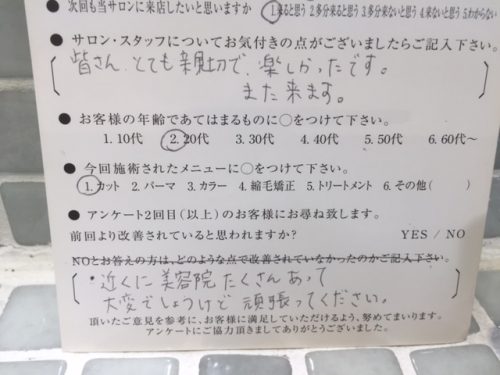 ● 次回も当サロンに来店したいと思いますか 1.来ると思う 2.多分来ると思う 3.多分来ないと思う 4.来ないと思う 5.わからない
● サロン・スタッフについてお気付きの点がございましたらご記入下さい。
皆さん、とても親切で、楽しかったです。
また来ます。
● お客様の年齢であてはまるものに○をつけて下さい。
1.10代 2.20代 3.30代 4.40代 5.50代 6.60代～
● 今回施術されたメニューに○をつけて下さい。
1.カット 2.パーマ 3.カラー 4.縮毛矯正 5.トリートメント 6.その他( )
● アンケート2回目(以上)のお客様にお尋ね致します。
前回より改善されていると思われますか? YES / NO
NOとお答えの方は、どのような点で改善されていなかったのかご記入下さい。
・近くに美容院たくさんあって
大変でしょうけど頑張ってください。
頂いたご意見を参考に、お客様に満足していただけるよう、努めてまいります。
アンケートにご協力頂きましてありがとうございました。